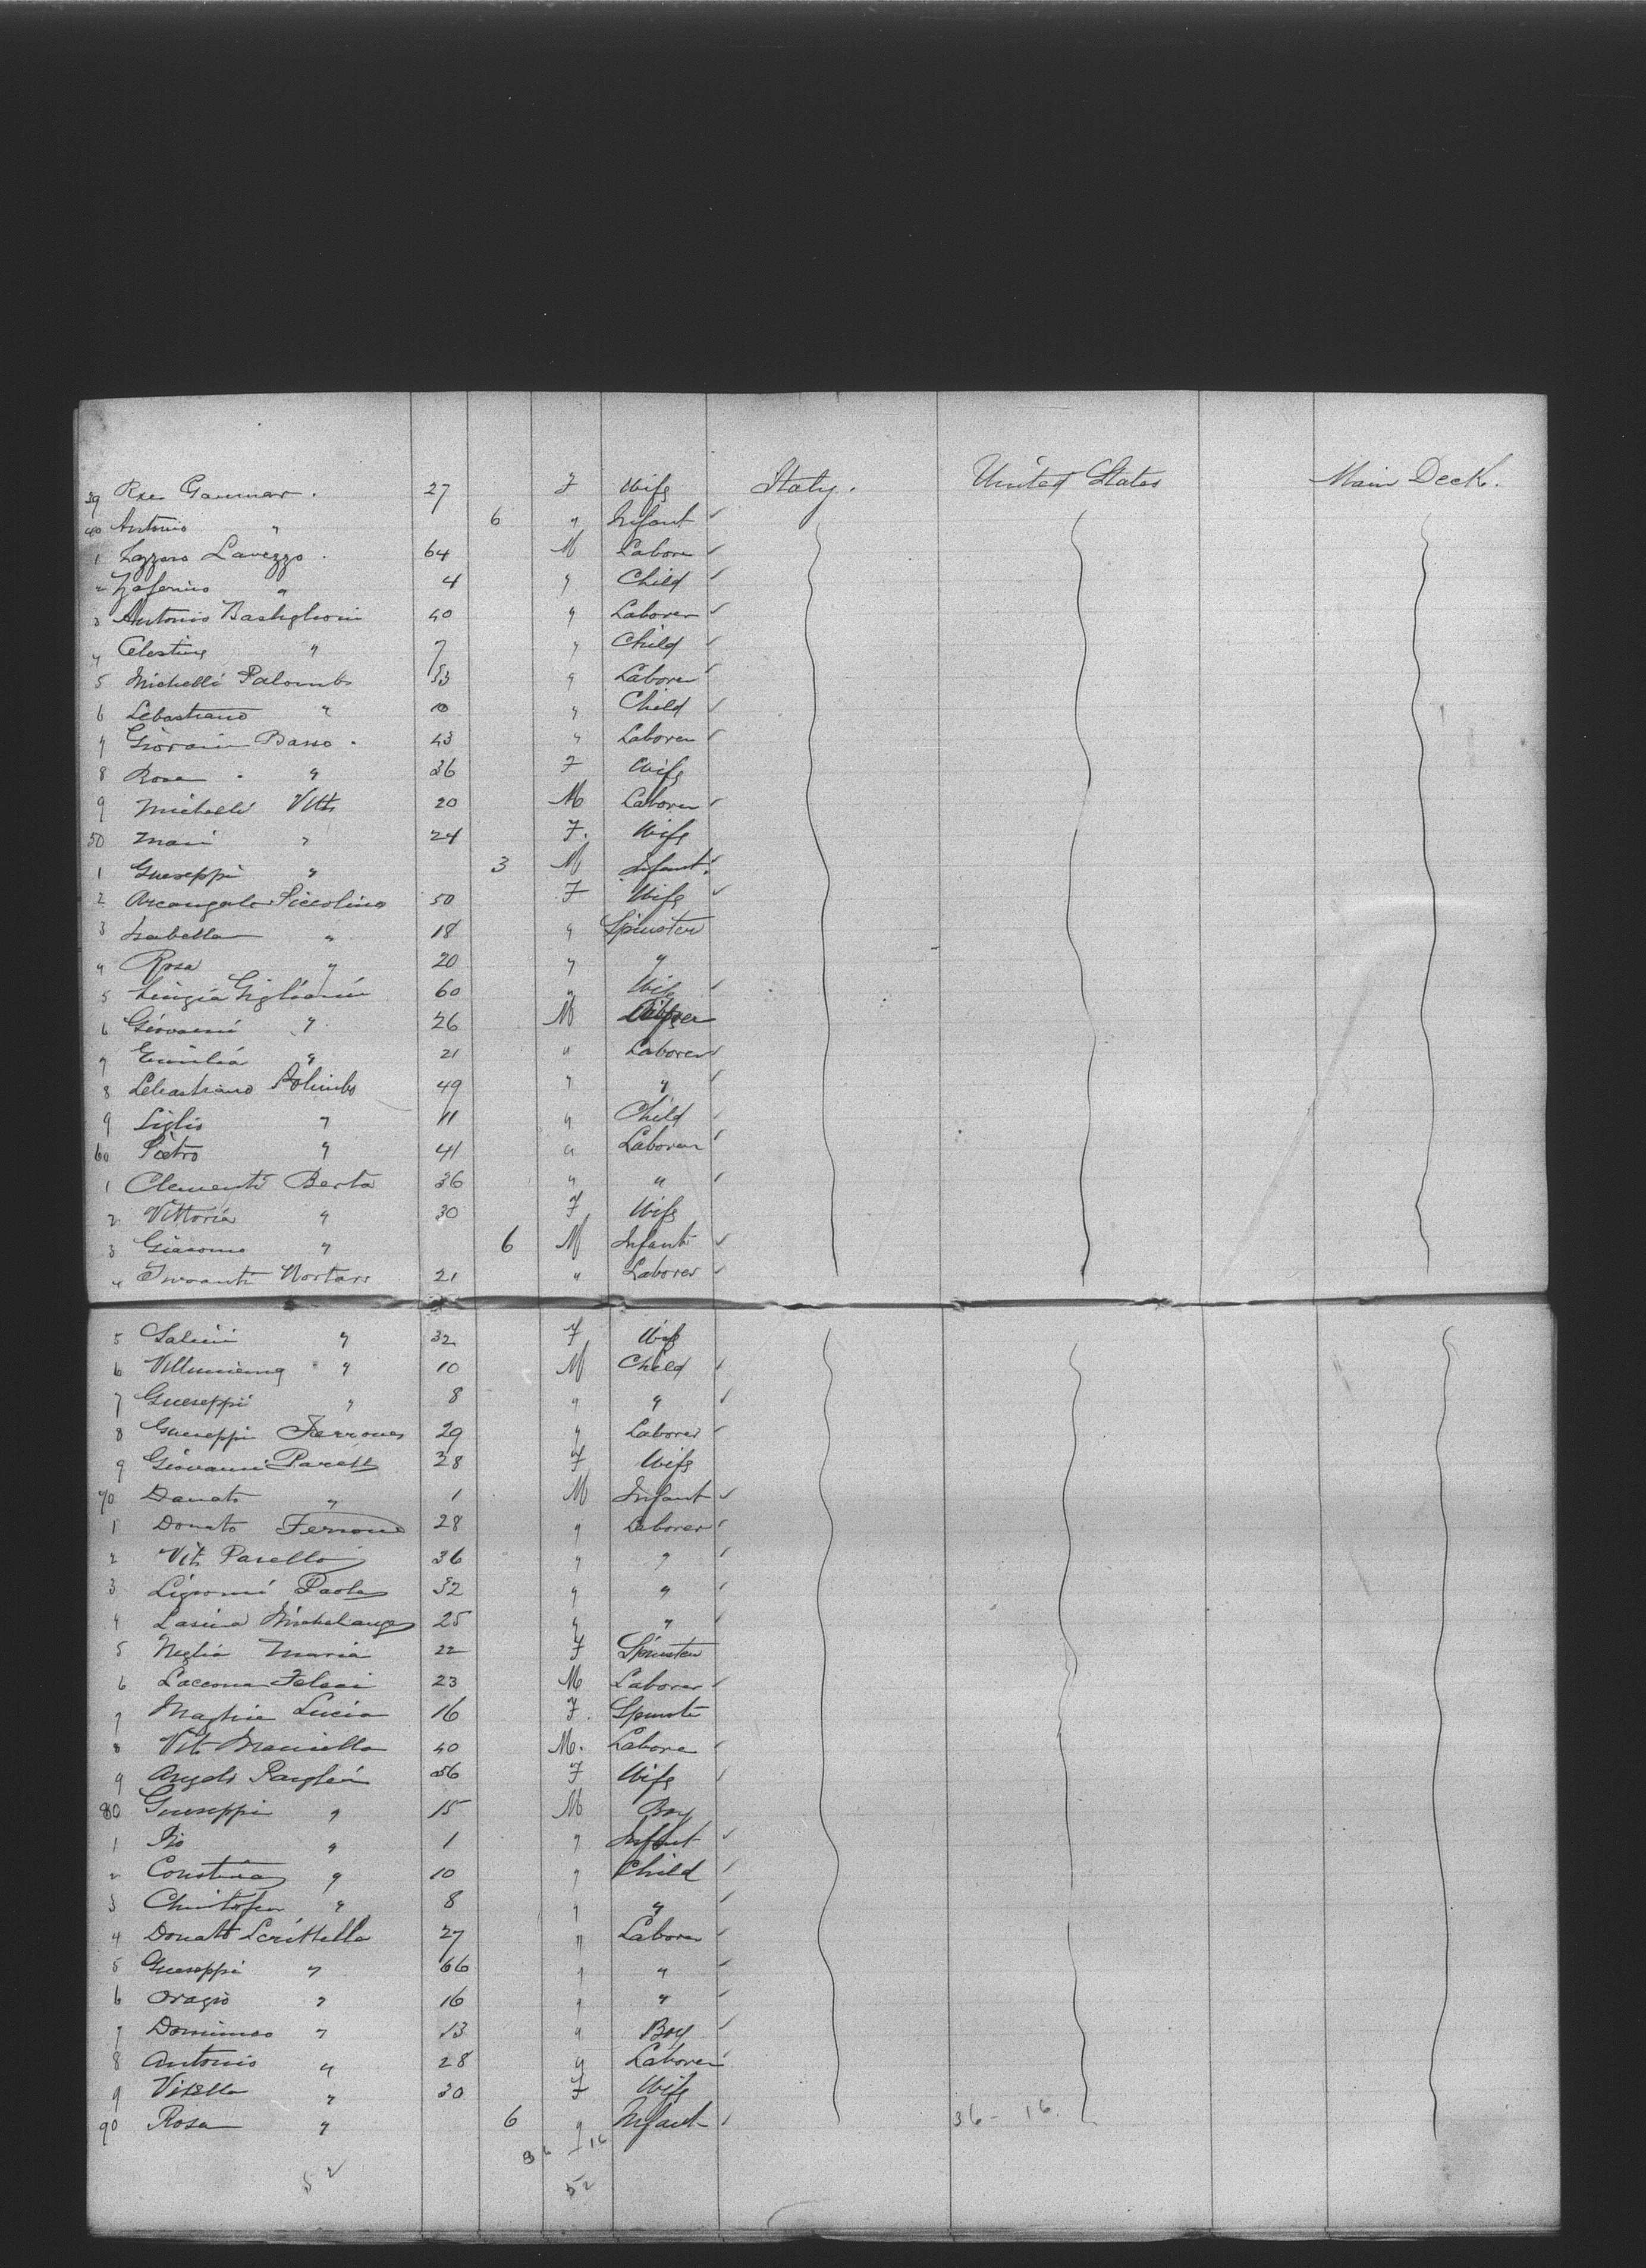 39 Rose Gaumar. 27 F Wife Italy. United States Main Deck.
40 Antonio " 6 " Infant
1 Lazzaro Lavezzo. 64 M Labore
2 Zaferino " 4 " Child
3 Antonio Bastiglioni 40 " Laborer
4 Celestina " 7 " Child
5 Michelli Palombo 53 " Laborer
6 Sebastiano " 10 " Child
7 Giovani Basso. 43 " Laborer
8 Rosa " 36 F Wife
9 Michelli Vitto 20 M Laborer
50 Mari " 24 F. Wife
1 Gueseppi " 3 M Infant
2 Arcangelo Piccolino 50 F Wife
3 Isabella " 18 " Spinster
4 Rosa " 20 " "
5 Luigia Giglianii 60 " Wife
6 Giovanni " 26 M Laborer
7 Emilia " 21 " Laborer
8 Sebastiano Polimbo 49 " "
9 Liglio " 11 " Child
60 Pietro " 41 " Laborer
1 Clementi Berta 36 " "
2 Vittoria " 30 F Wife
3 Giacomo " 6 M Infant
4 Nortaro 21 " Laborer
5 Salvini " 32 F Wife
6 " 10 M Child
7 Gueseppi " 8 " "
8 Gueseppi Ferrones 29 " Laborer
9 Giovanni Parell 28 F Wife
70 Danato " 1 M Infant
1 Donato Ferrone 28 " Laborer
2 Vito Parello 36 " "
3 Paola 32 " "
4 Michelangeo 25 " "
5 Neglia Maria 22 F Spinster
6 Laccona Felici 23 M Laborer
7 Lucia 16 F. Spinste
8 Vito Maniello 40 M. Labore
9 Angelo 56 F Wife
80 Gueseppi " 15 M Boy
1 Pio " 1 " Infant
2 Constina " 10 " Child
3 Christofer " 8 " "
4 Donato Scrittella 27 " Laborer
5 Gueseppi " 66 " "
6 Oragio " 16 " "
7 Dominico " 13 " Boy
8 Antonio " 28 " Laborer
9 Vitella " 30 F Wife
90 Rosa " 6 " Infant 36 - 16.
36 - 16
52 52